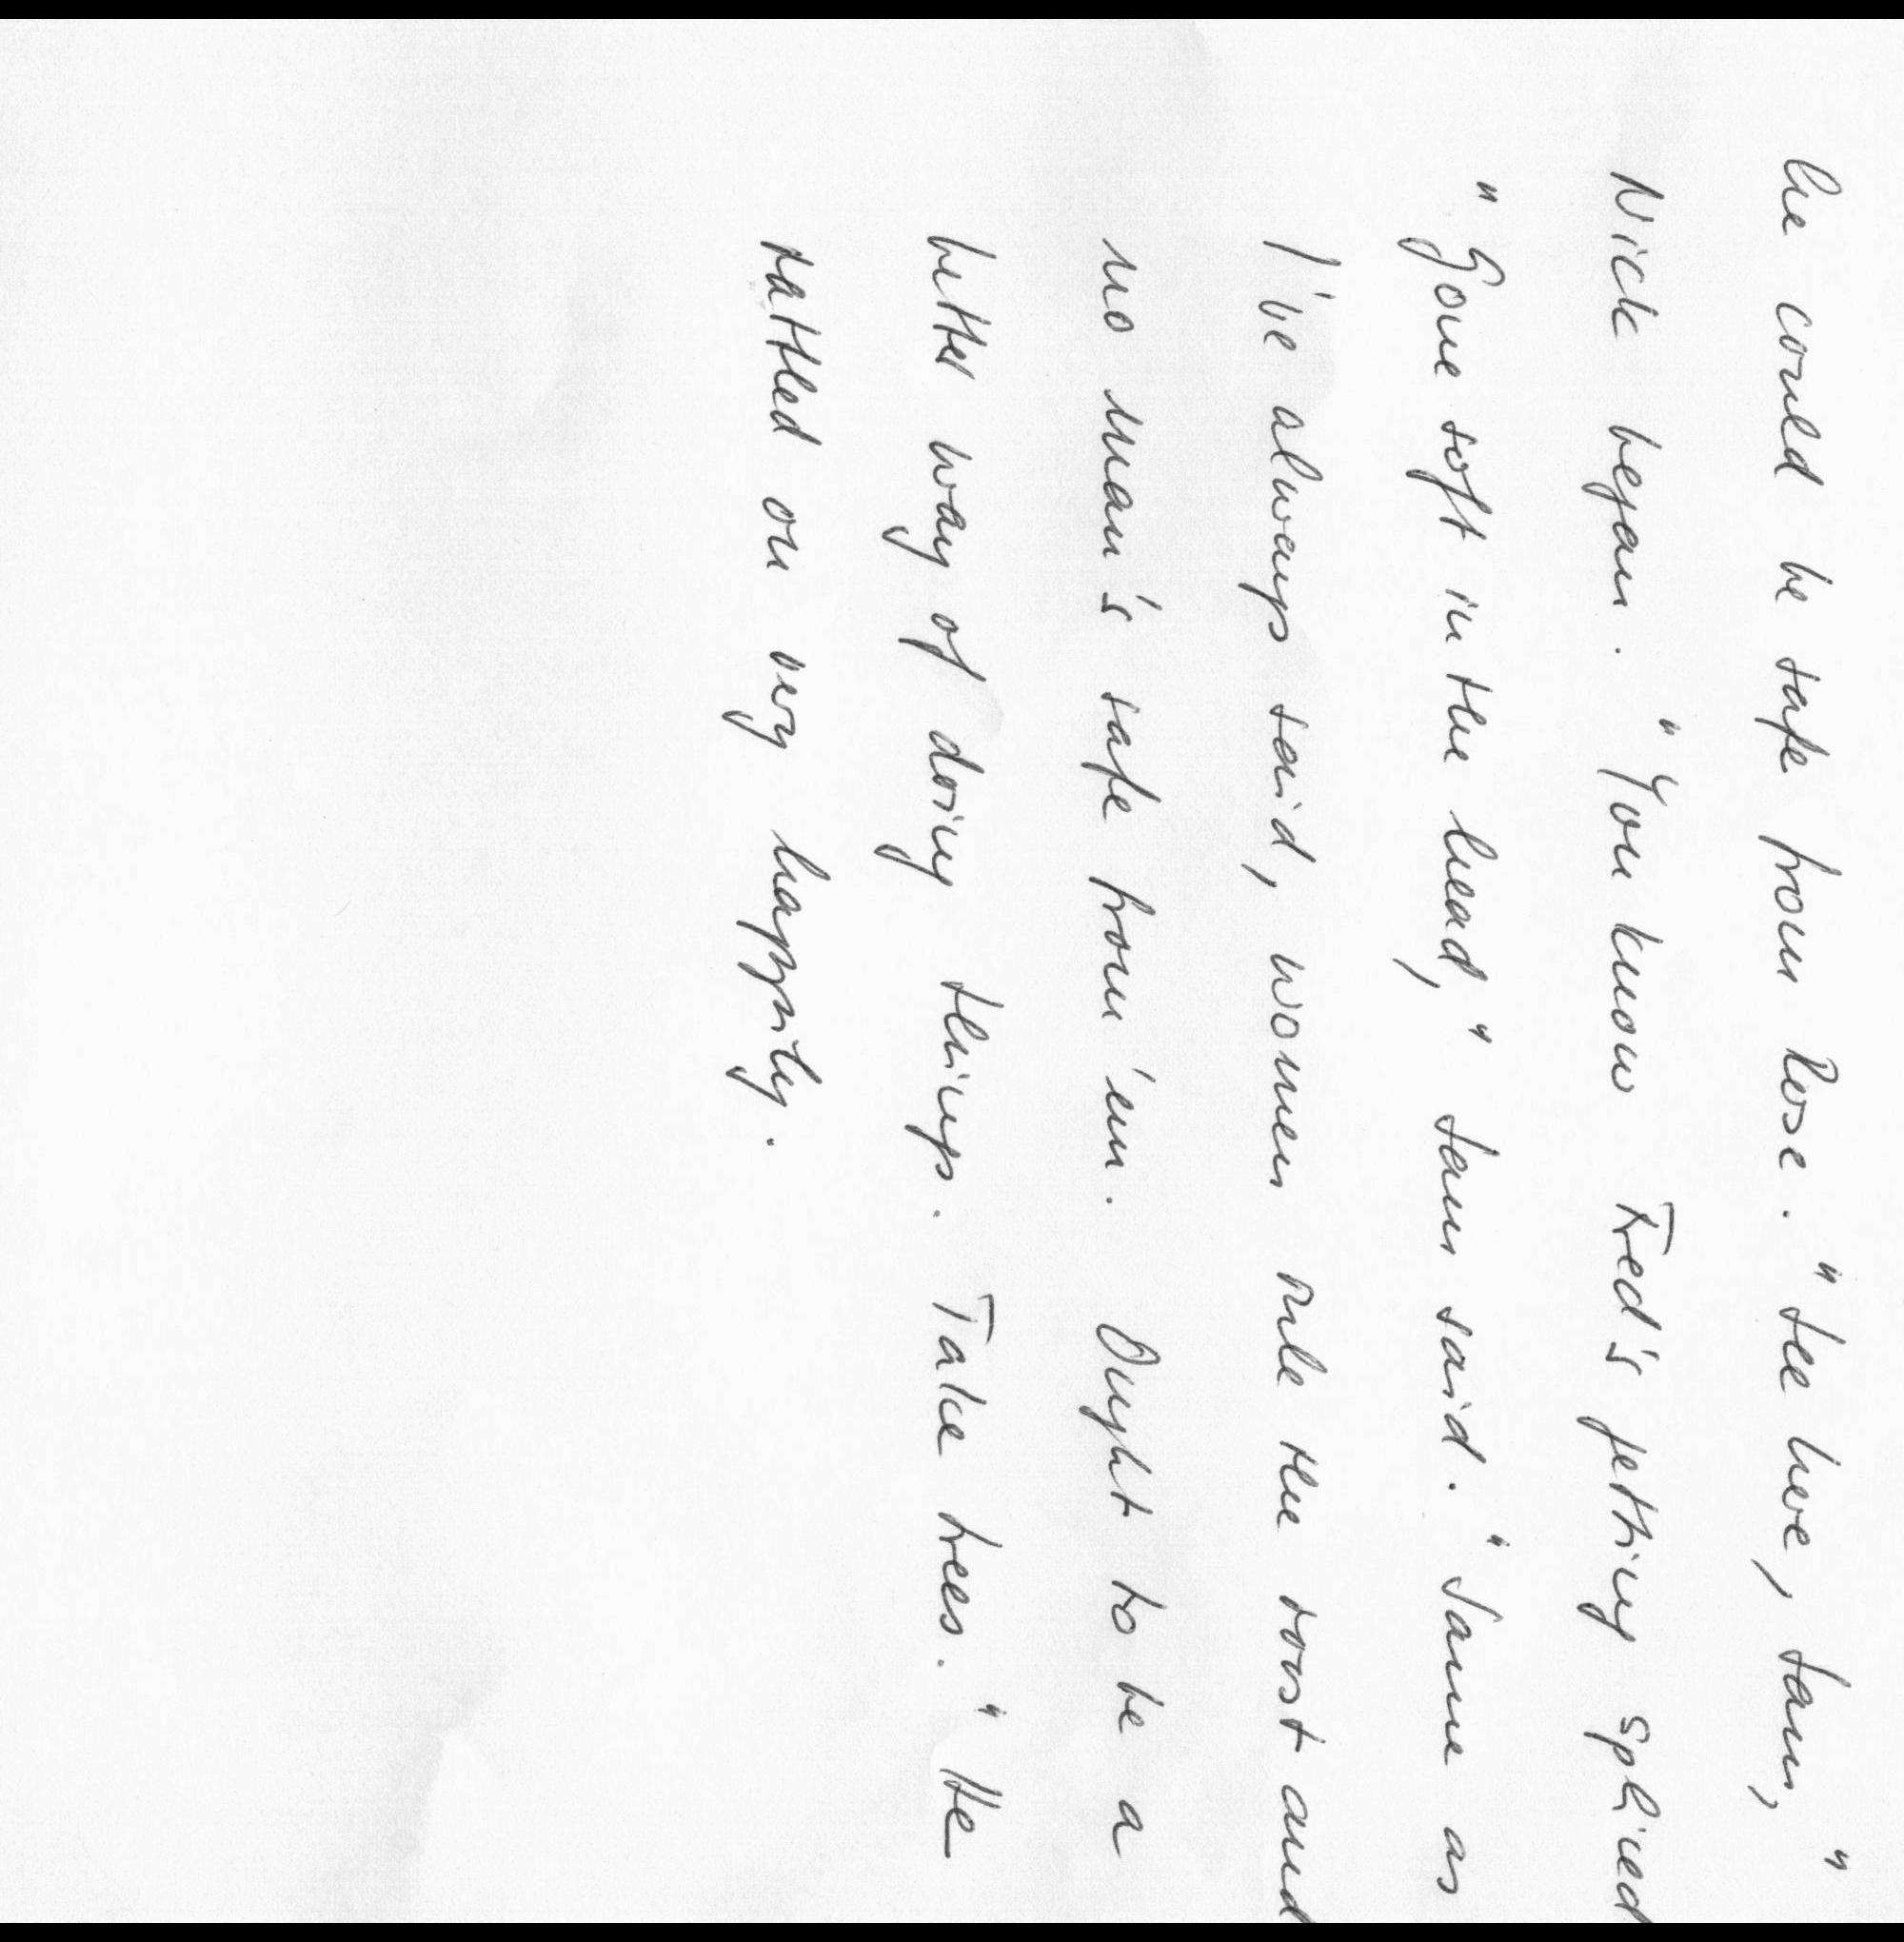 he could be safe from Rose. "See here, Sam,"
Nick began. "You know Fred's getting spliced
"Gone soft in the head," Sam said. "Same as
I've always said, women rule the roost and
no man's safe from 'em. Ought to be a
better way of doing things. Take trees." He
rattled on very happily.